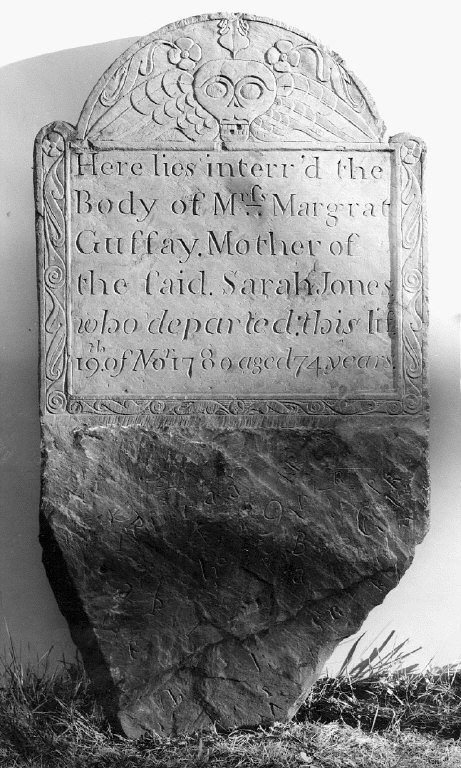 Here lies interr'd the
Body of Mrs. Margrat
Guffay, Mother of
the ſaid. Sarah Jones
who departed, this lif
19th. of Novr 1780 aged 74 years.